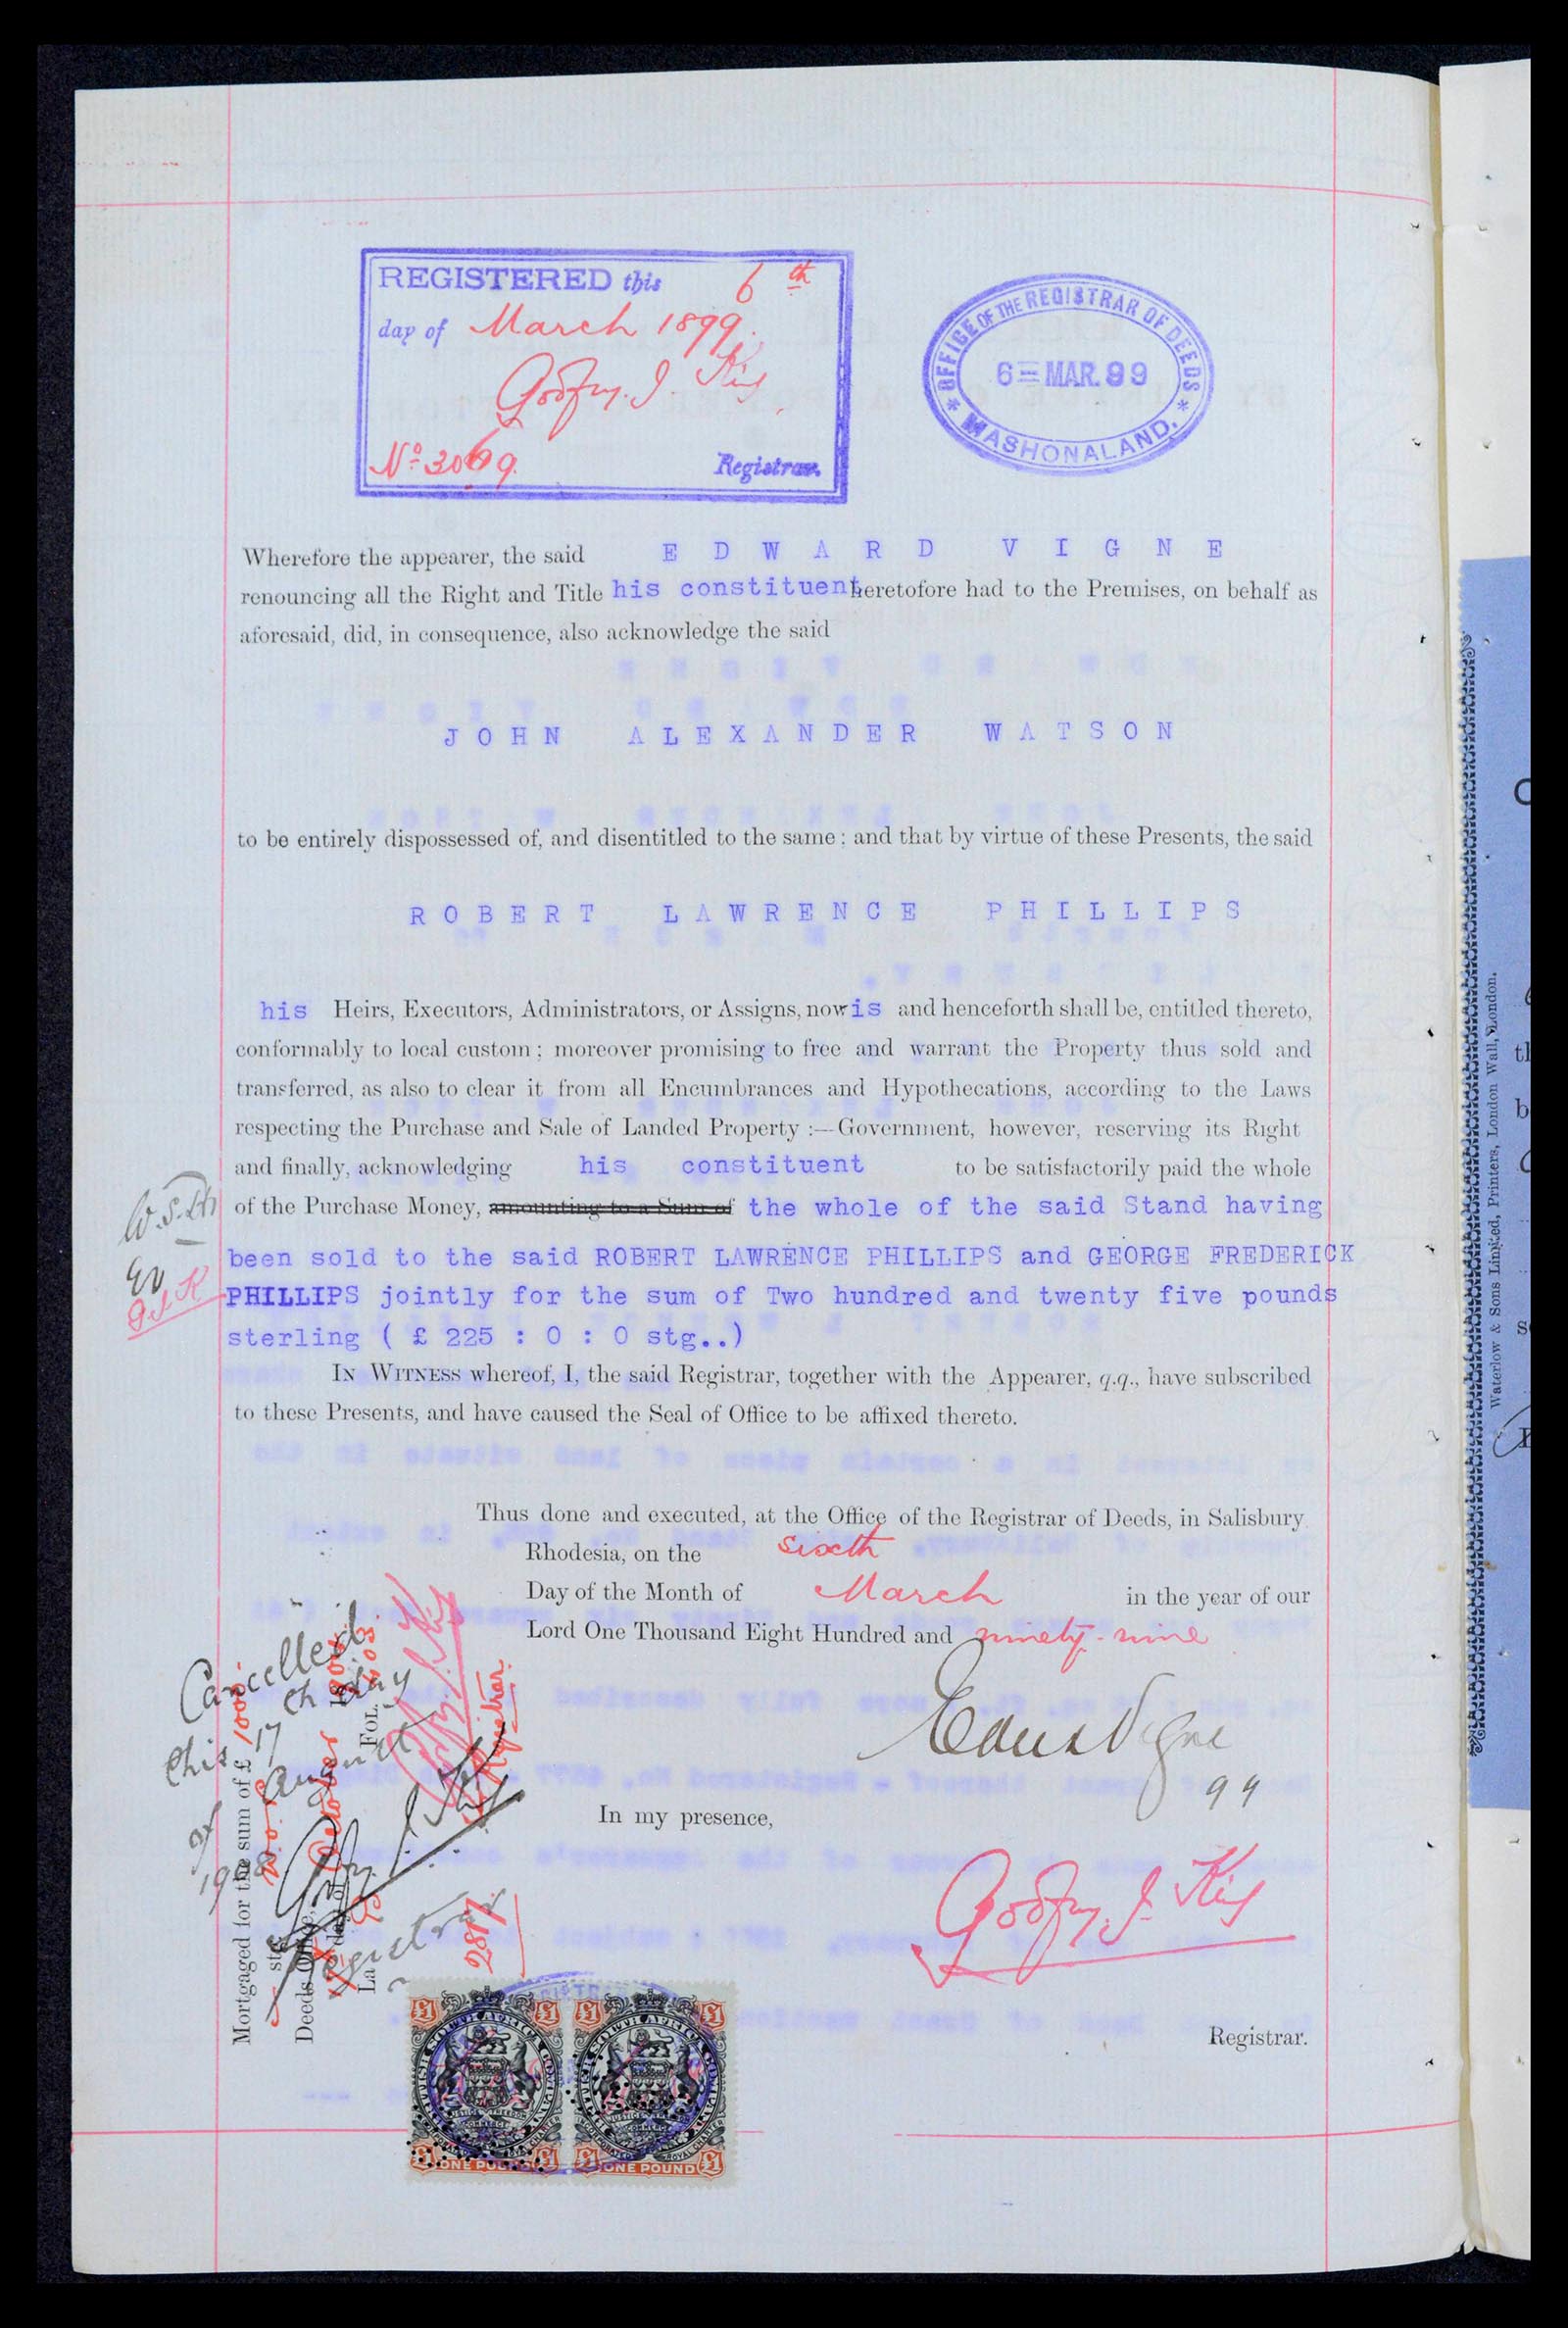 REGISTERED this 6th
day of March 1899.
Godfrey J. King
No 3069. Registrar.
OFFICE OF THE REGISTRAR OF DEEDS
6 = MAR. 99
* MASHONALAND. *
Wherefore the appearer, the said EDWARD VIGNE
renouncing all the Right and Title his constituent heretofore had to the Premises, on behalf as
aforesaid, did, in consequence, also acknowledge the said
JOHN ALEXANDER WATSON
to be entirely dispossessed of, and disentitled to the same; and that by virtue of these Presents, the said
ROBERT LAWRENCE PHILLIPS
his Heirs, Executors, Administrators, or Assigns, now is and henceforth shall be, entitled thereto,
conformably to local custom; moreover promising to free and warrant the Property thus sold and
transferred, as also to clear it from all Encumbrances and Hypothecations, according to the Laws
respecting the Purchase and Sale of Landed Property :—Government, however, reserving its Right
and finally, acknowledging his constituent to be satisfactorily paid the whole
of the Purchase Money, amounting to a Sum of the whole of the said Stand having
been sold to the said ROBERT LAWRENCE PHILLIPS and GEORGE FREDERICK
PHILLIPS jointly for the sum of Two hundred and twenty five pounds
sterling ( £ 225 : 0 : 0 stg..)
EV
G.J.K
IN WITNESS whereof, I, the said Registrar, together with the Appearer, q.q., have subscribed
to these Presents, and have caused the Seal of Office to be affixed thereto.
Thus done and executed, at the Office of the Registrar of Deeds, in Salisbury
Rhodesia, on the sixth
Day of the Month of March in the year of our
Lord One Thousand Eight Hundred and ninety-nine
Edward Vigne
99
In my presence,
Godfrey J. King
Registrar.
Mortgaged for the sum of £ 1000
stg
Deeds Office,
day of October
Fol. 403
Godfrey J. King
Registrar.
2817
Cancelled
this 17th day
of August
1908
Godfrey J. King
Registrar
£1 £1 £1 £1
£1 ONE POUND £1 £1 ONE POUND £1
Waterlow & Sons Limited, Printers, London Wall, London.